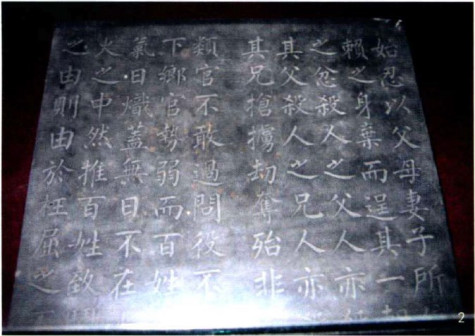 始忍以父母妻子所
賴之身棄而逞其一
之忿殺人之父人亦
其父殺人之兄人亦
其兄搶擄劫奪殆非
類官不敢過問役不
下鄉官勢弱而百姓
氣日熾蓋無日不在
火之中然推百姓欲
之由則由於枉屈之
2